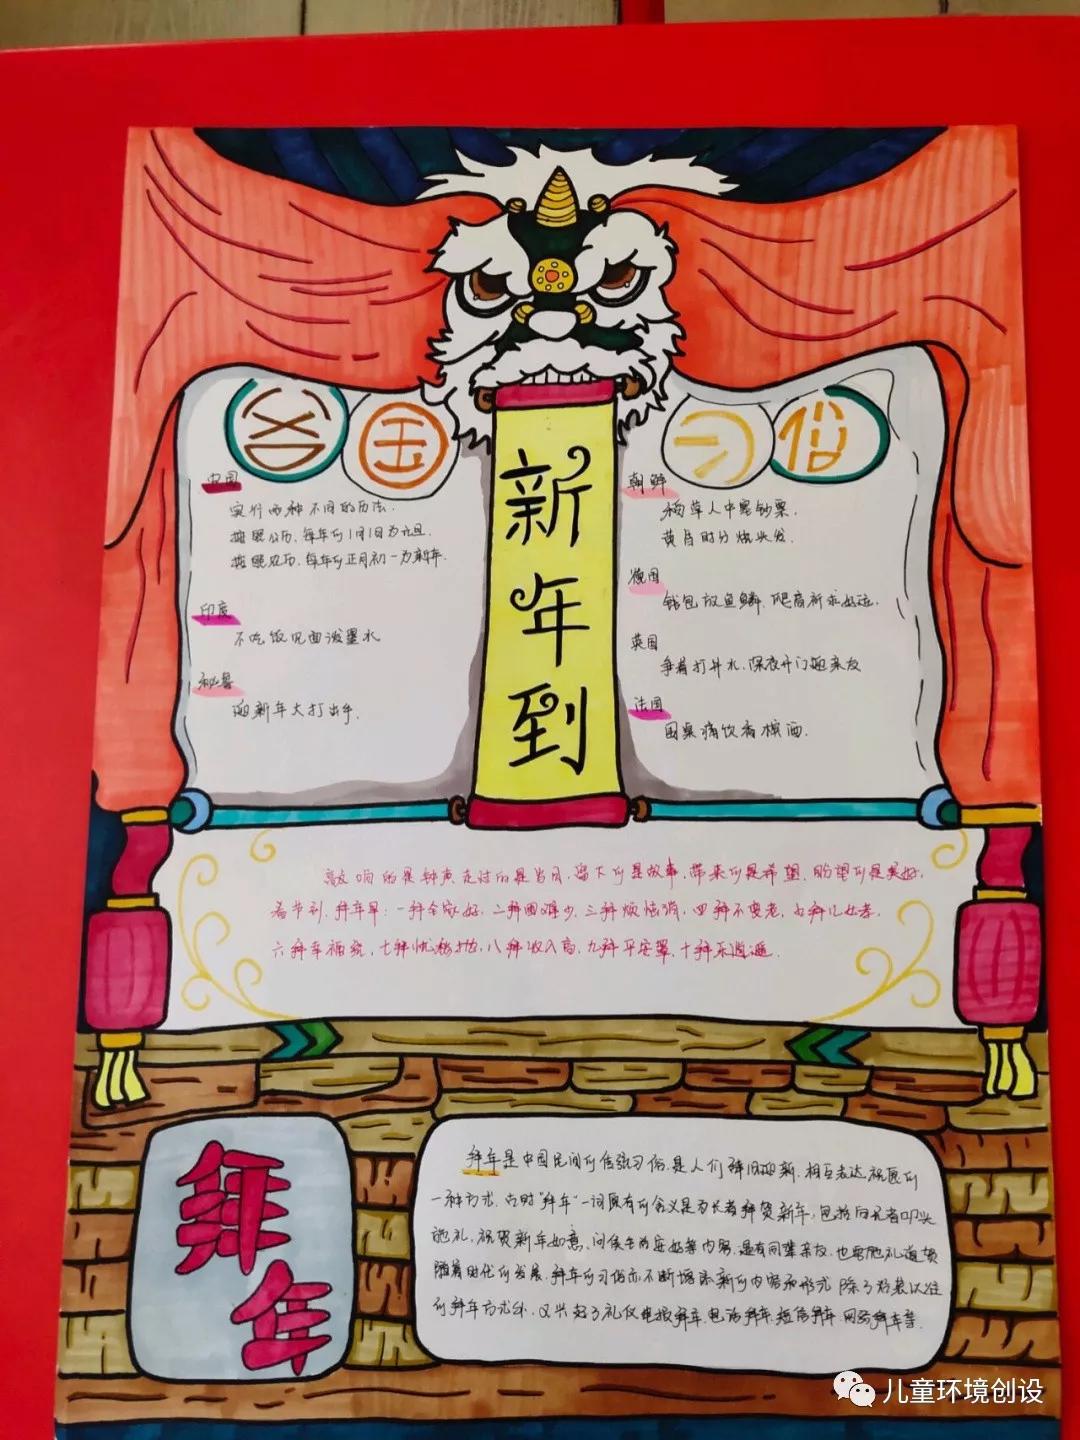 各国习俗
新年到
中国
实行两种不同的历法.
按照公历,每年的1月1日为元旦.
按照农历,每年的正月初一为新年.
印度
不吃饭见面泼墨水
秘鲁
迎新年大打出手.
朝鲜
稻草人中塞钞票.
黄昏时分烧头发.
德国
钱包放鱼鳞.爬高祈求好运.
英国
争着打井水,深夜开门迎亲友
法国
围桌痛饮香槟酒.
敲响的是钟声,走过的是岁月,留下的是故事,带来的是希望,盼望的是美好,
春节到,拜年早:一拜全家好,二拜困难少,三拜烦恼消,四拜不变老,五拜儿女孝,
六拜幸福绕,七拜忧愁抛,八拜收入高,九拜平安罩,十拜乐逍遥.
拜年
拜年是中国民间的传统习俗,是人们辞旧迎新.相互表达祝愿的
一种方式.古时"拜年"一词原有的含义是为长者拜贺新年,包括向长者叩头
施礼,祝贺新年如意,问候生活安好等内容.遇有同辈亲友,也要施礼道贺
随着时代的发展,拜年的习俗亦不断增添新的内容和形式.除了沿袭以往
的拜年方式外,又兴起了礼仪电报拜年.电话拜年.短信拜年.网络拜年等.
儿童环境创设